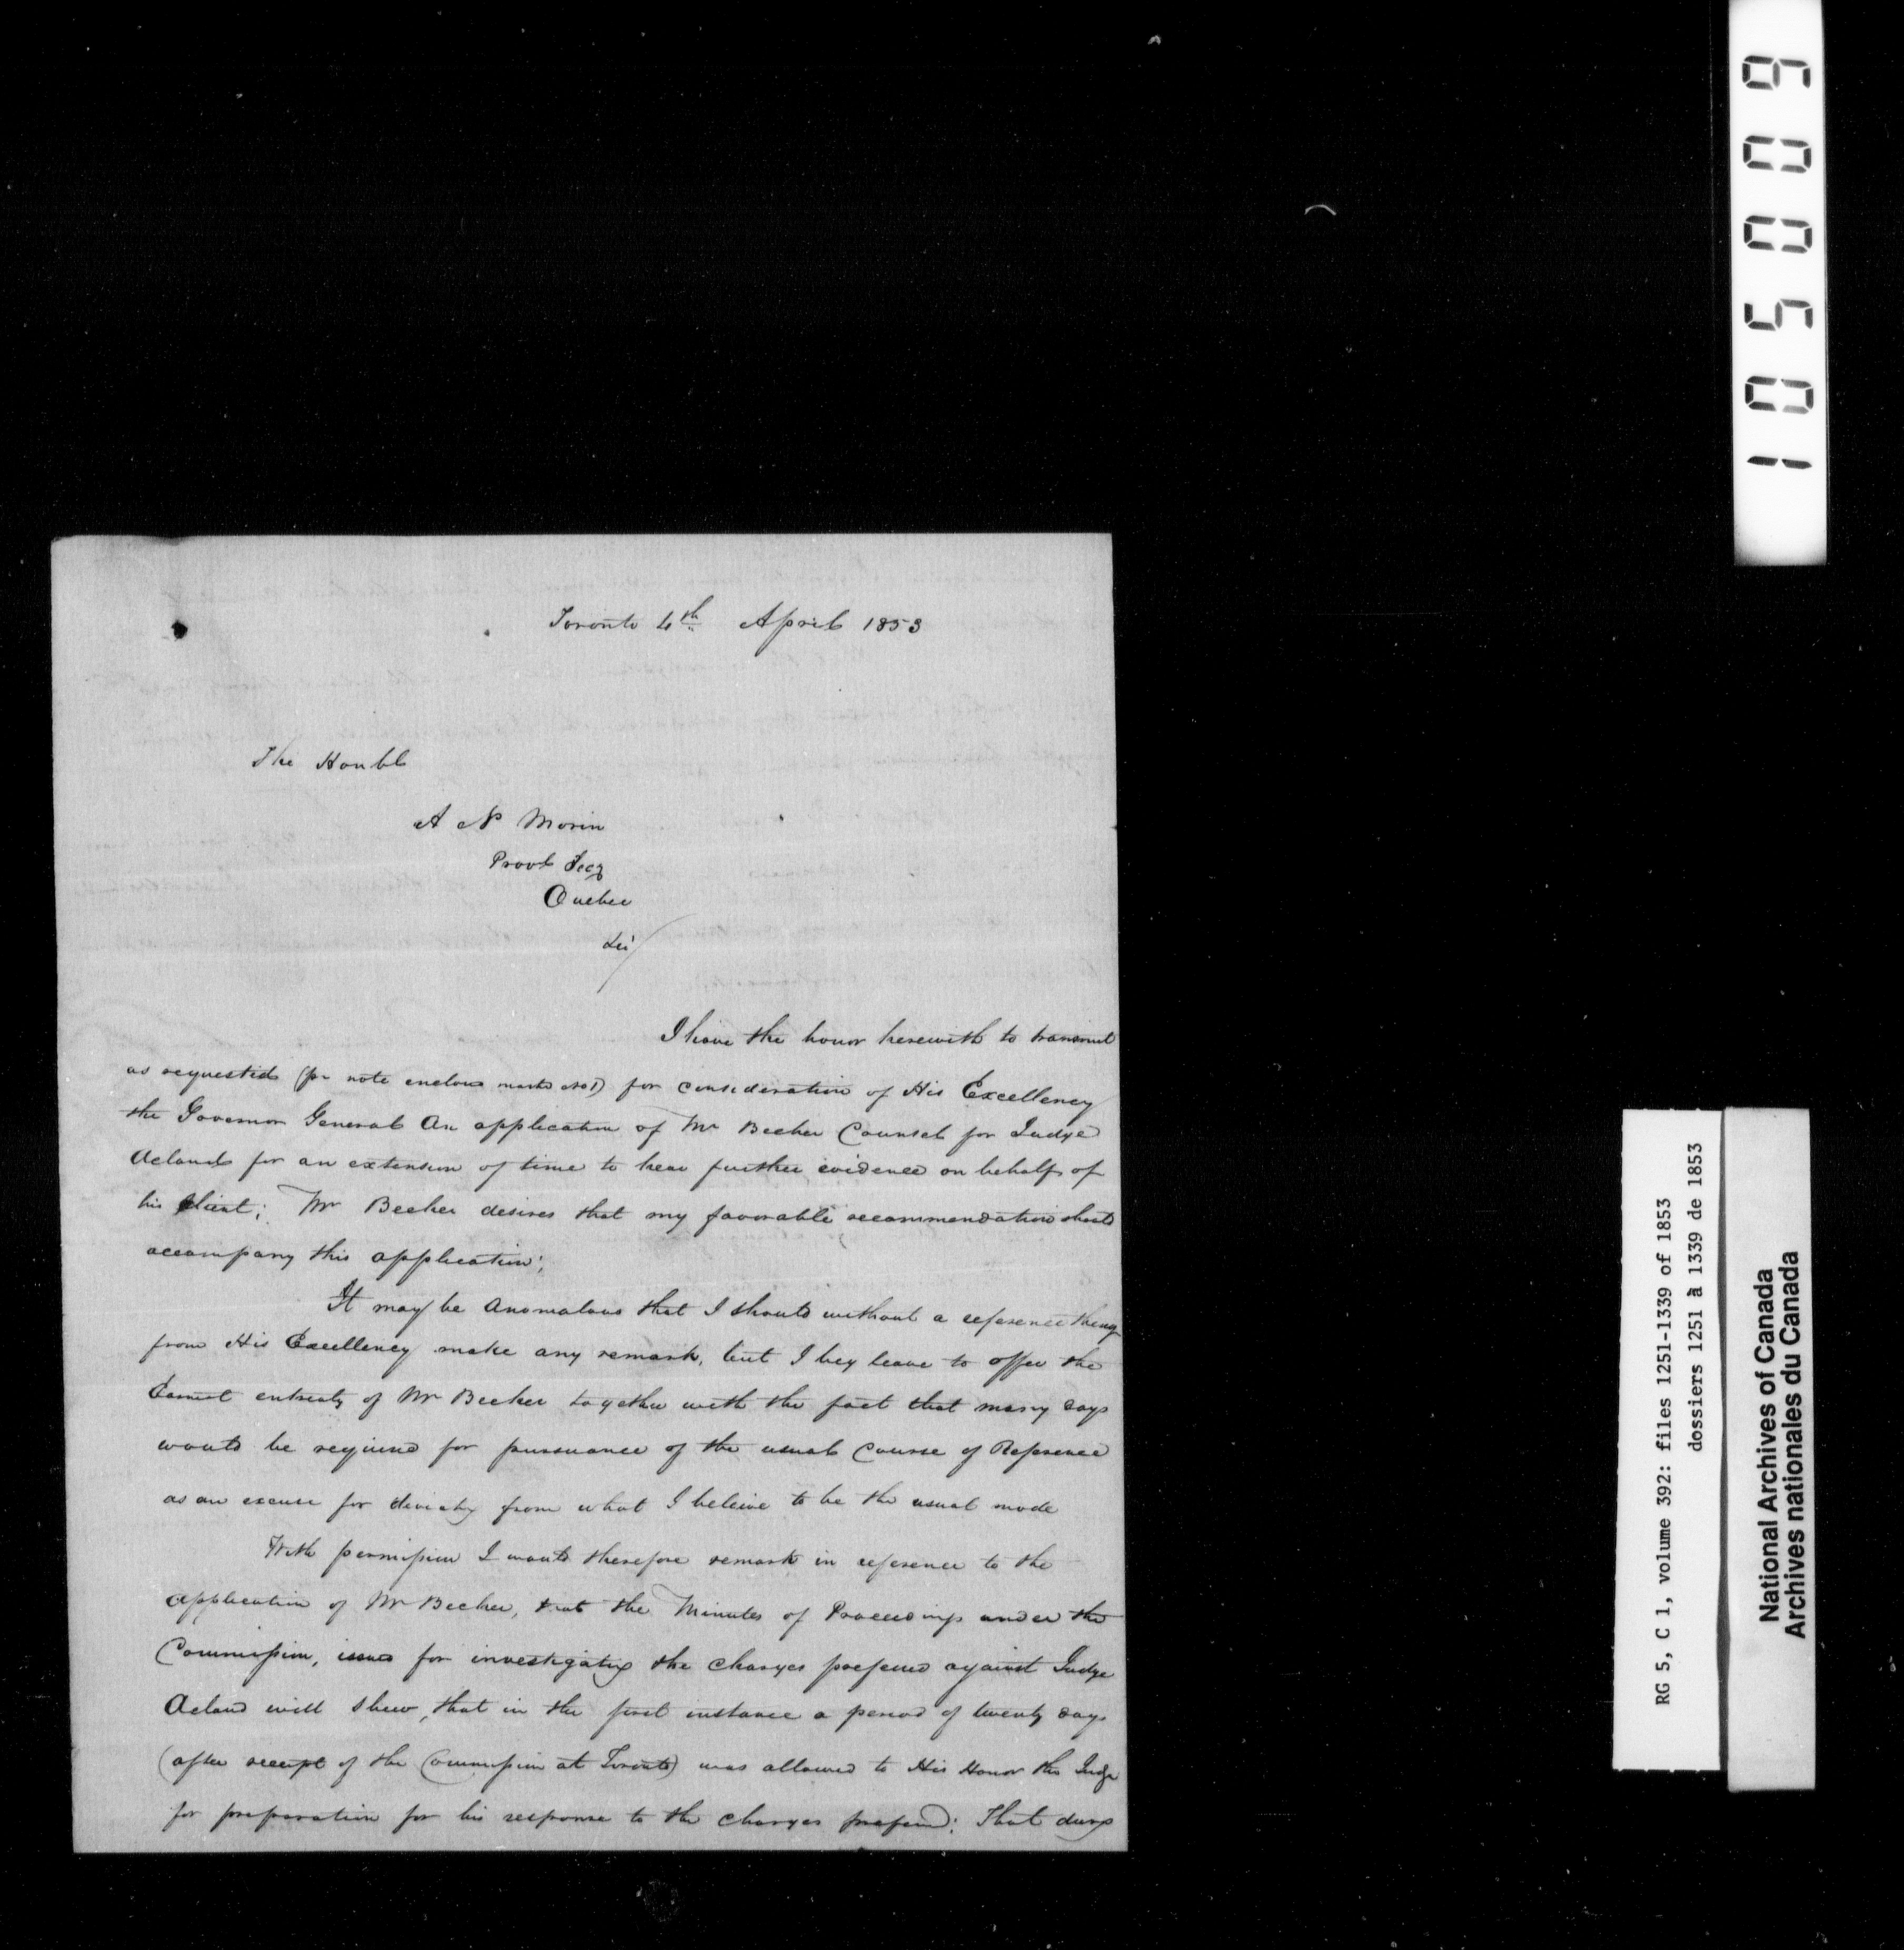 Toronto 4th April 1853
The Honble
A N Morin
Provl Secy
Quebec
Sir
I have the honor herewith to transmit
as requested (pr note enclosed marked No 1) for consideration of His Excellency
the Governor General An application of Mr Becher Counsel for Judge
Acland for an extension of time to hear further evidence on behalf of
his Client; Mr Becher desires that my favorable recommendation should
accompany this application;
It may be anomalous that I should without a reference
from His Excellency make any remark, but I beg leave to offer the
Earnest entreaty of Mr Becher together with the fact that many days
would be required for pursuance of the usual Course of Reference
as an excuse for deviating from what I beleive to be the usual mode
With permission I would therefore remark in reference to the
application of Mr Becher, that the Minutes of Proceedings under the
Commission, issued for investigating the charges prefered against Judge
Acland will shew, that in the first instance a period of twenty days
(after receipt of the Commission at Toronto) was allowed to His Honor the Judge
for preparation for his response to the charges prefered; That during
105009
RG 5, C 1, volume 392: files 1251-1339 of 1853
dossiers 1251 à 1339 de 1853
National Archives of Canada
Archives nationales du Canada